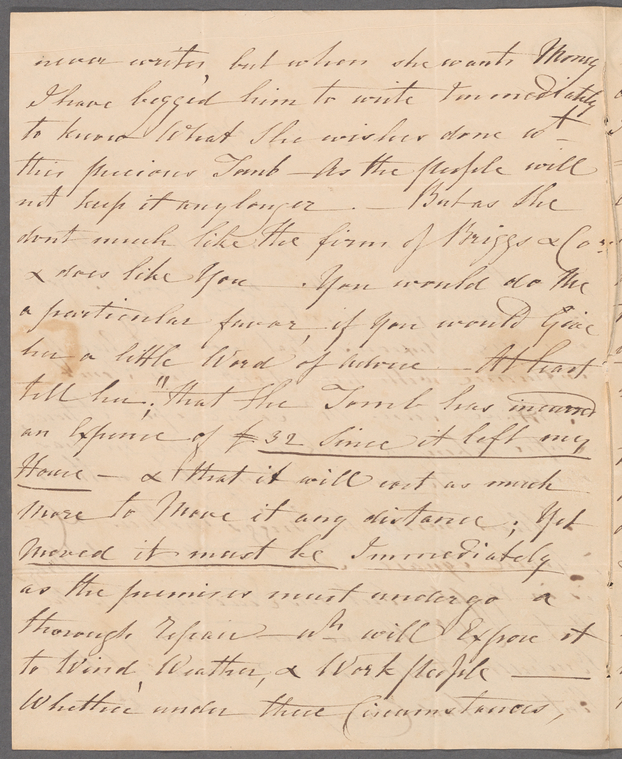 never writes, but when she wants Money
I have begged him to write Immediately
to know What She wishes done wt
this precious Tomb - As the people will
not keep it any longer. - But as She
dont much like the firm of Briggs & Co
& does like You. You would do Me
a particular favor, if You would Give
her a little Word of Advice - At least
tell her; "that the Tomb has incurred
an Expence of $32 Since it left my
House - & that it will cost as much
More to Move it any distance; Yet
Moved it must be Immediately
as the premises must undergo a
thorough repair - wh will Expose it
to Wind, Weather, & Work people
Whether under these Circumstances,